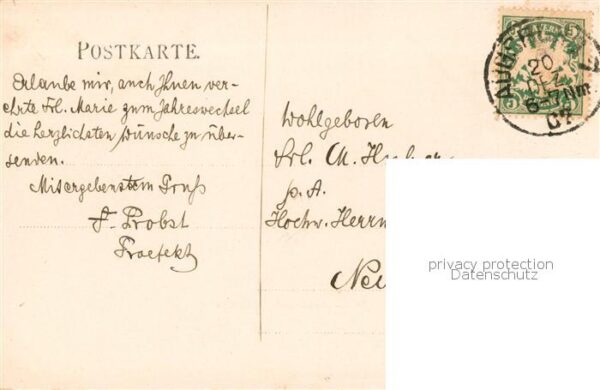 POSTKARTE.
Erlaube mir, auch Ihnen ver-
ehrte Frl. Marie zum Jahreswechsel
die herzlichsten Wünsche zu über-
senden.
Mit ergebenstem Gruß
F. Probst
Praefekt
Wohlgeboren
Frl. M.
p. A.
Hochw. Herrn
Nei
20
DEZ
6-7 Nm
5
privacy protection
Datenschutz